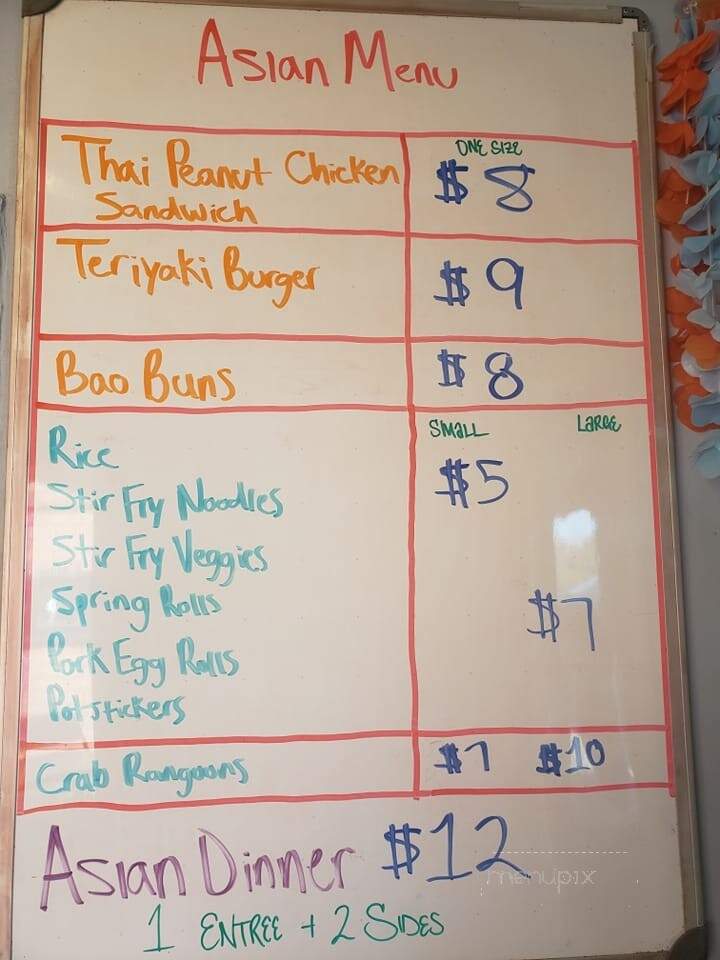 Asian Menu
ONE SIZE
Thai Peanut Chicken $8
Sandwich
Teriyaki Burger $9
Bao Buns $8
SMALL LARGE
Rice
Stir Fry Noodles $5
Stir Fry Veggies
Spring Rolls $7
Pork Egg Rolls
Potstickers
Crab Rangoons $7 $10
Asian Dinner $12
menupix
1 ENTREE + 2 SIDES